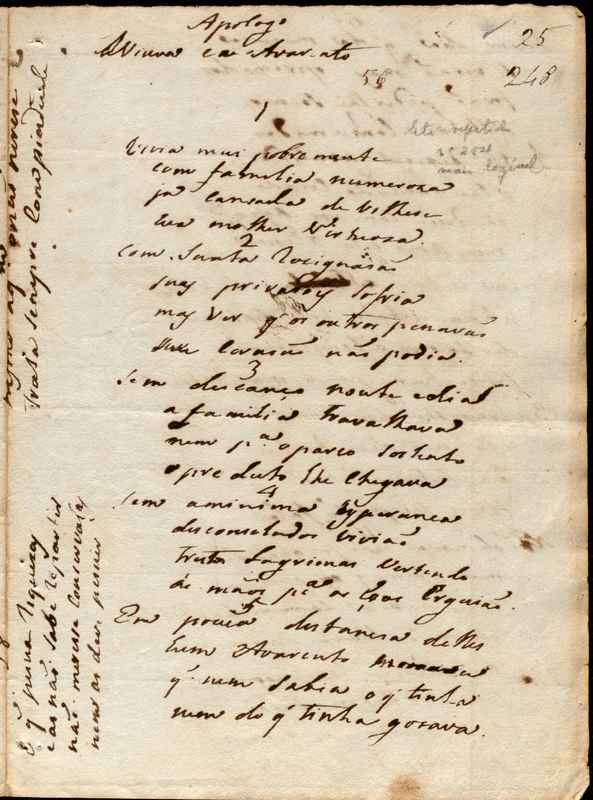 Apologo
A Viuva e o Avarento
25
56
248
1
Vivia mui pobremente
com familia numeroza
já cansada de velhece
hua molher Virtuoza.
2
com Santa Rezignasaõ
suas privasoẽs sofria
mas ver q̃ os outros penavaõ
seu corasaõ naõ podia.
3
Sem descanço noute e dia
a familia travalhava
nem p.ª o parco sustento
o produto lhe chegava
4
Sem a minima esperansa
desconsolados viviaõ
tristes Lagrimas vertendo
as maõs p.ª os Ceos Erguiaõ.
5
Em pouca distansia delles
hum Avarento morava
q̃ nem sabia o q̃ tinha
nem do q̃ tinha gozava.
trata sempre com piedade
E q̃ pesua riquezas
e as naõ sabe repartir
naõ merese conservalas
nem as deve pesuir
mais legivel